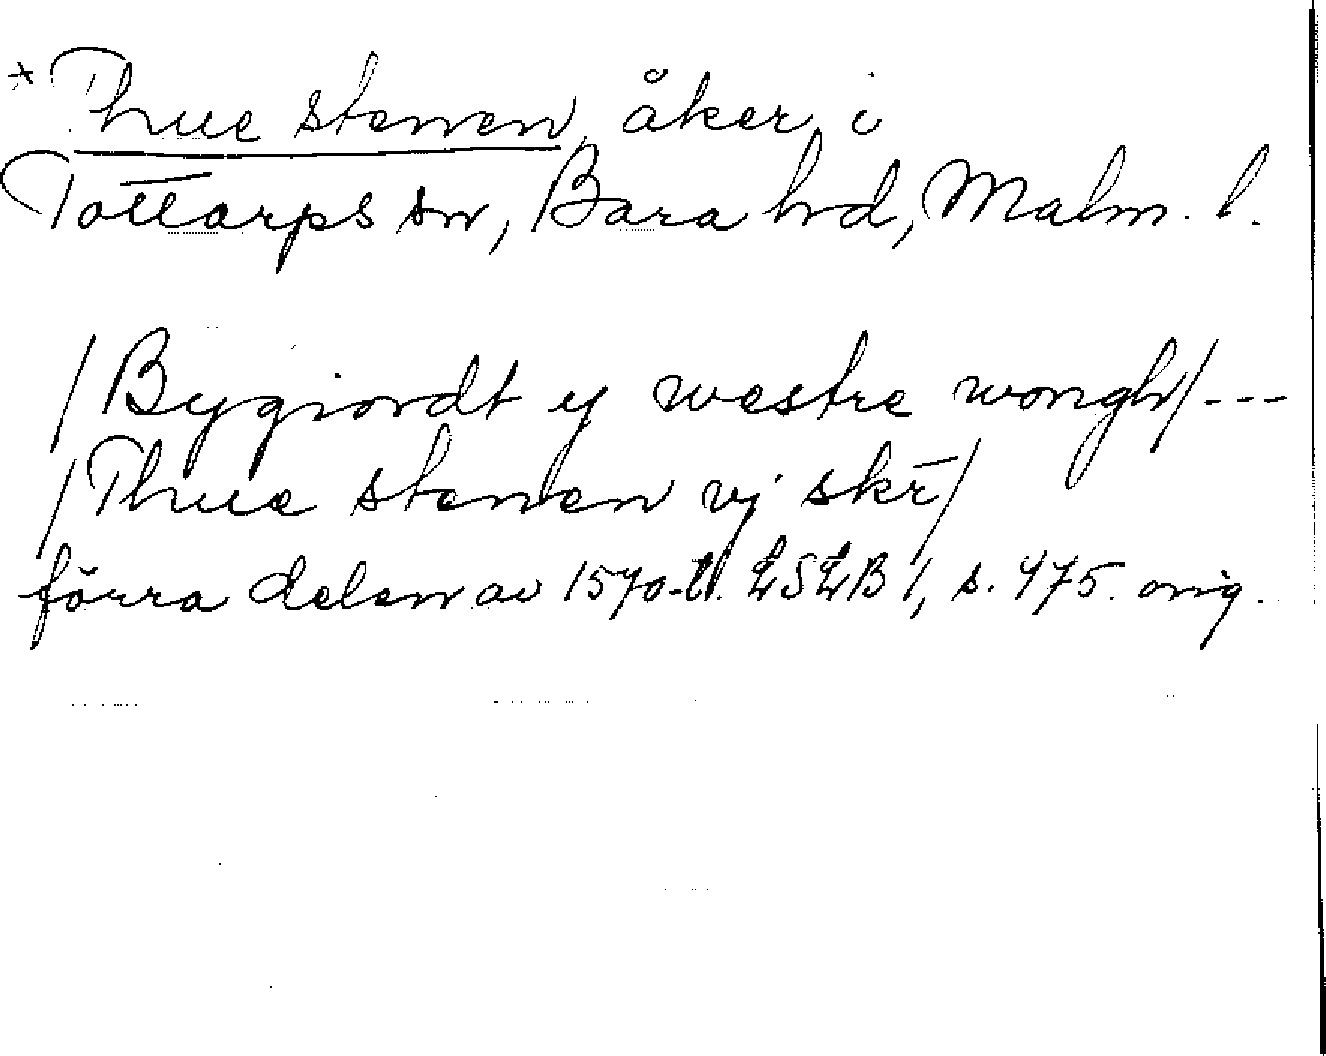 * Thue stenen, åker i
Tottarps sn, Bara hd, Malm. l.
/Bygiordt y westre wongh/---
/Thue stenen vj skr̄/
förra delen av 1570-t. LSLB 1, s. 475. orig.